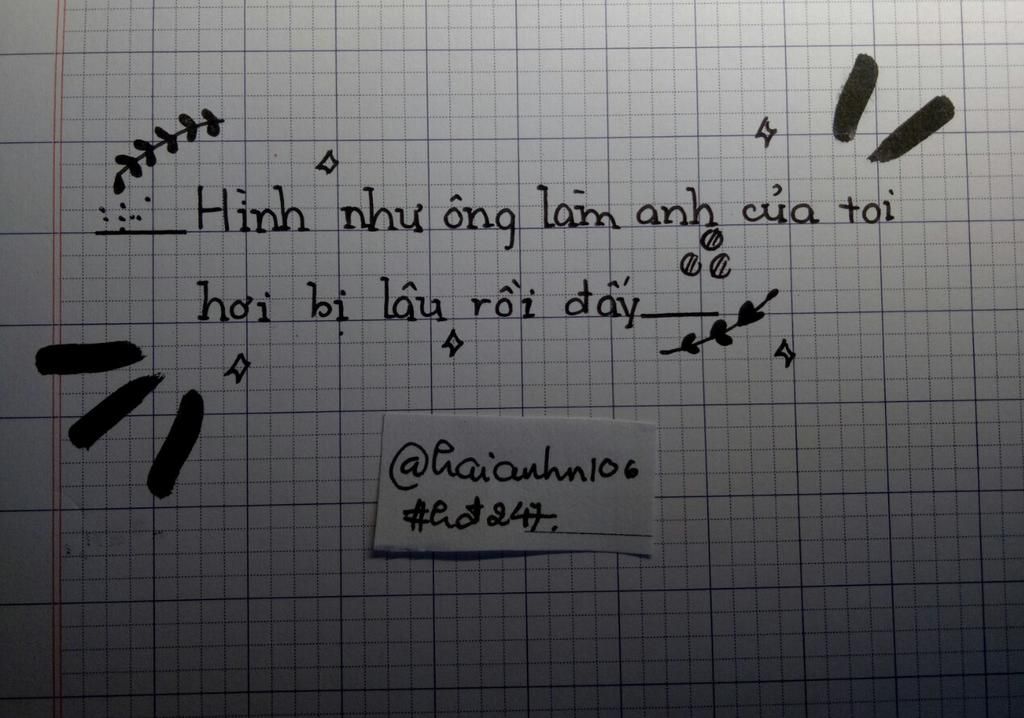 Hình như ông làm anh của toi
hơi bị lâu rồi đấy
@haianhn106
#hđ247.